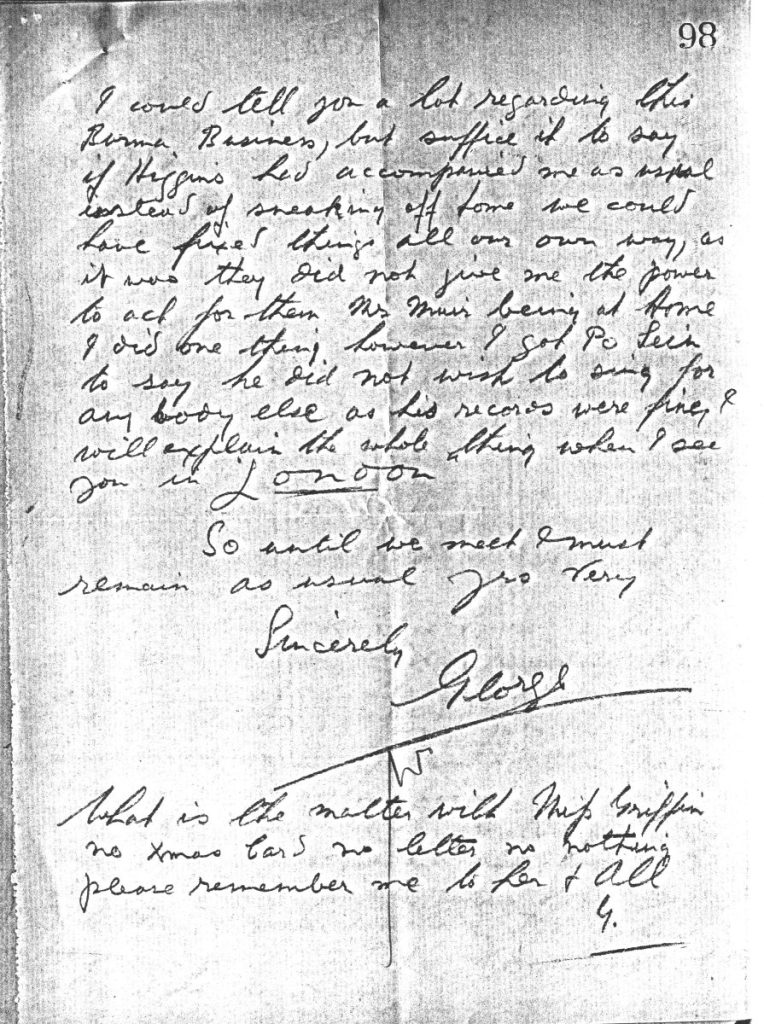 98
I could tell you a lot regarding this
Burma Business, but suffice it to say
if Higgins had accompanied me as usual
instead of sneaking off home we could
have fixed things all our own way, as
it was they did not give me the power
to act for them Mr Muir being at Home
I did one thing however I got Po Sein
to say he did not wish to sing for
any body else as his records were fine, I
will explain the whole thing when I see
you in London
So until we meet I must
remain as usual Yrs Very
Sincerely
George
What is the matter with Miss Griffin
no Xmas Card no letter no nothing
please remember me to her & All
G.